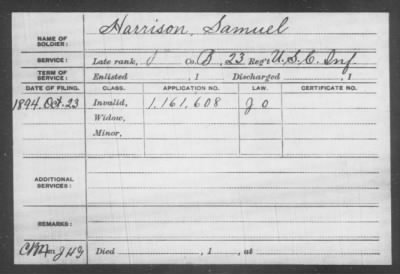 NAME OF SOLDIER: Harrison, Samuel
SERVICE: Late rank, Co. B, 23 Reg't U.S.C. Inf.
TERM OF SERVICE: Enlisted , 1 Discharged , 1
DATE OF FILING. CLASS. APPLICATION NO. LAW. CERTIFICATE NO.
1894, Oct. 23 Invalid, 1,161,608
Widow,
Minor,
ADDITIONAL SERVICES:
REMARKS:
Died , 1 , at